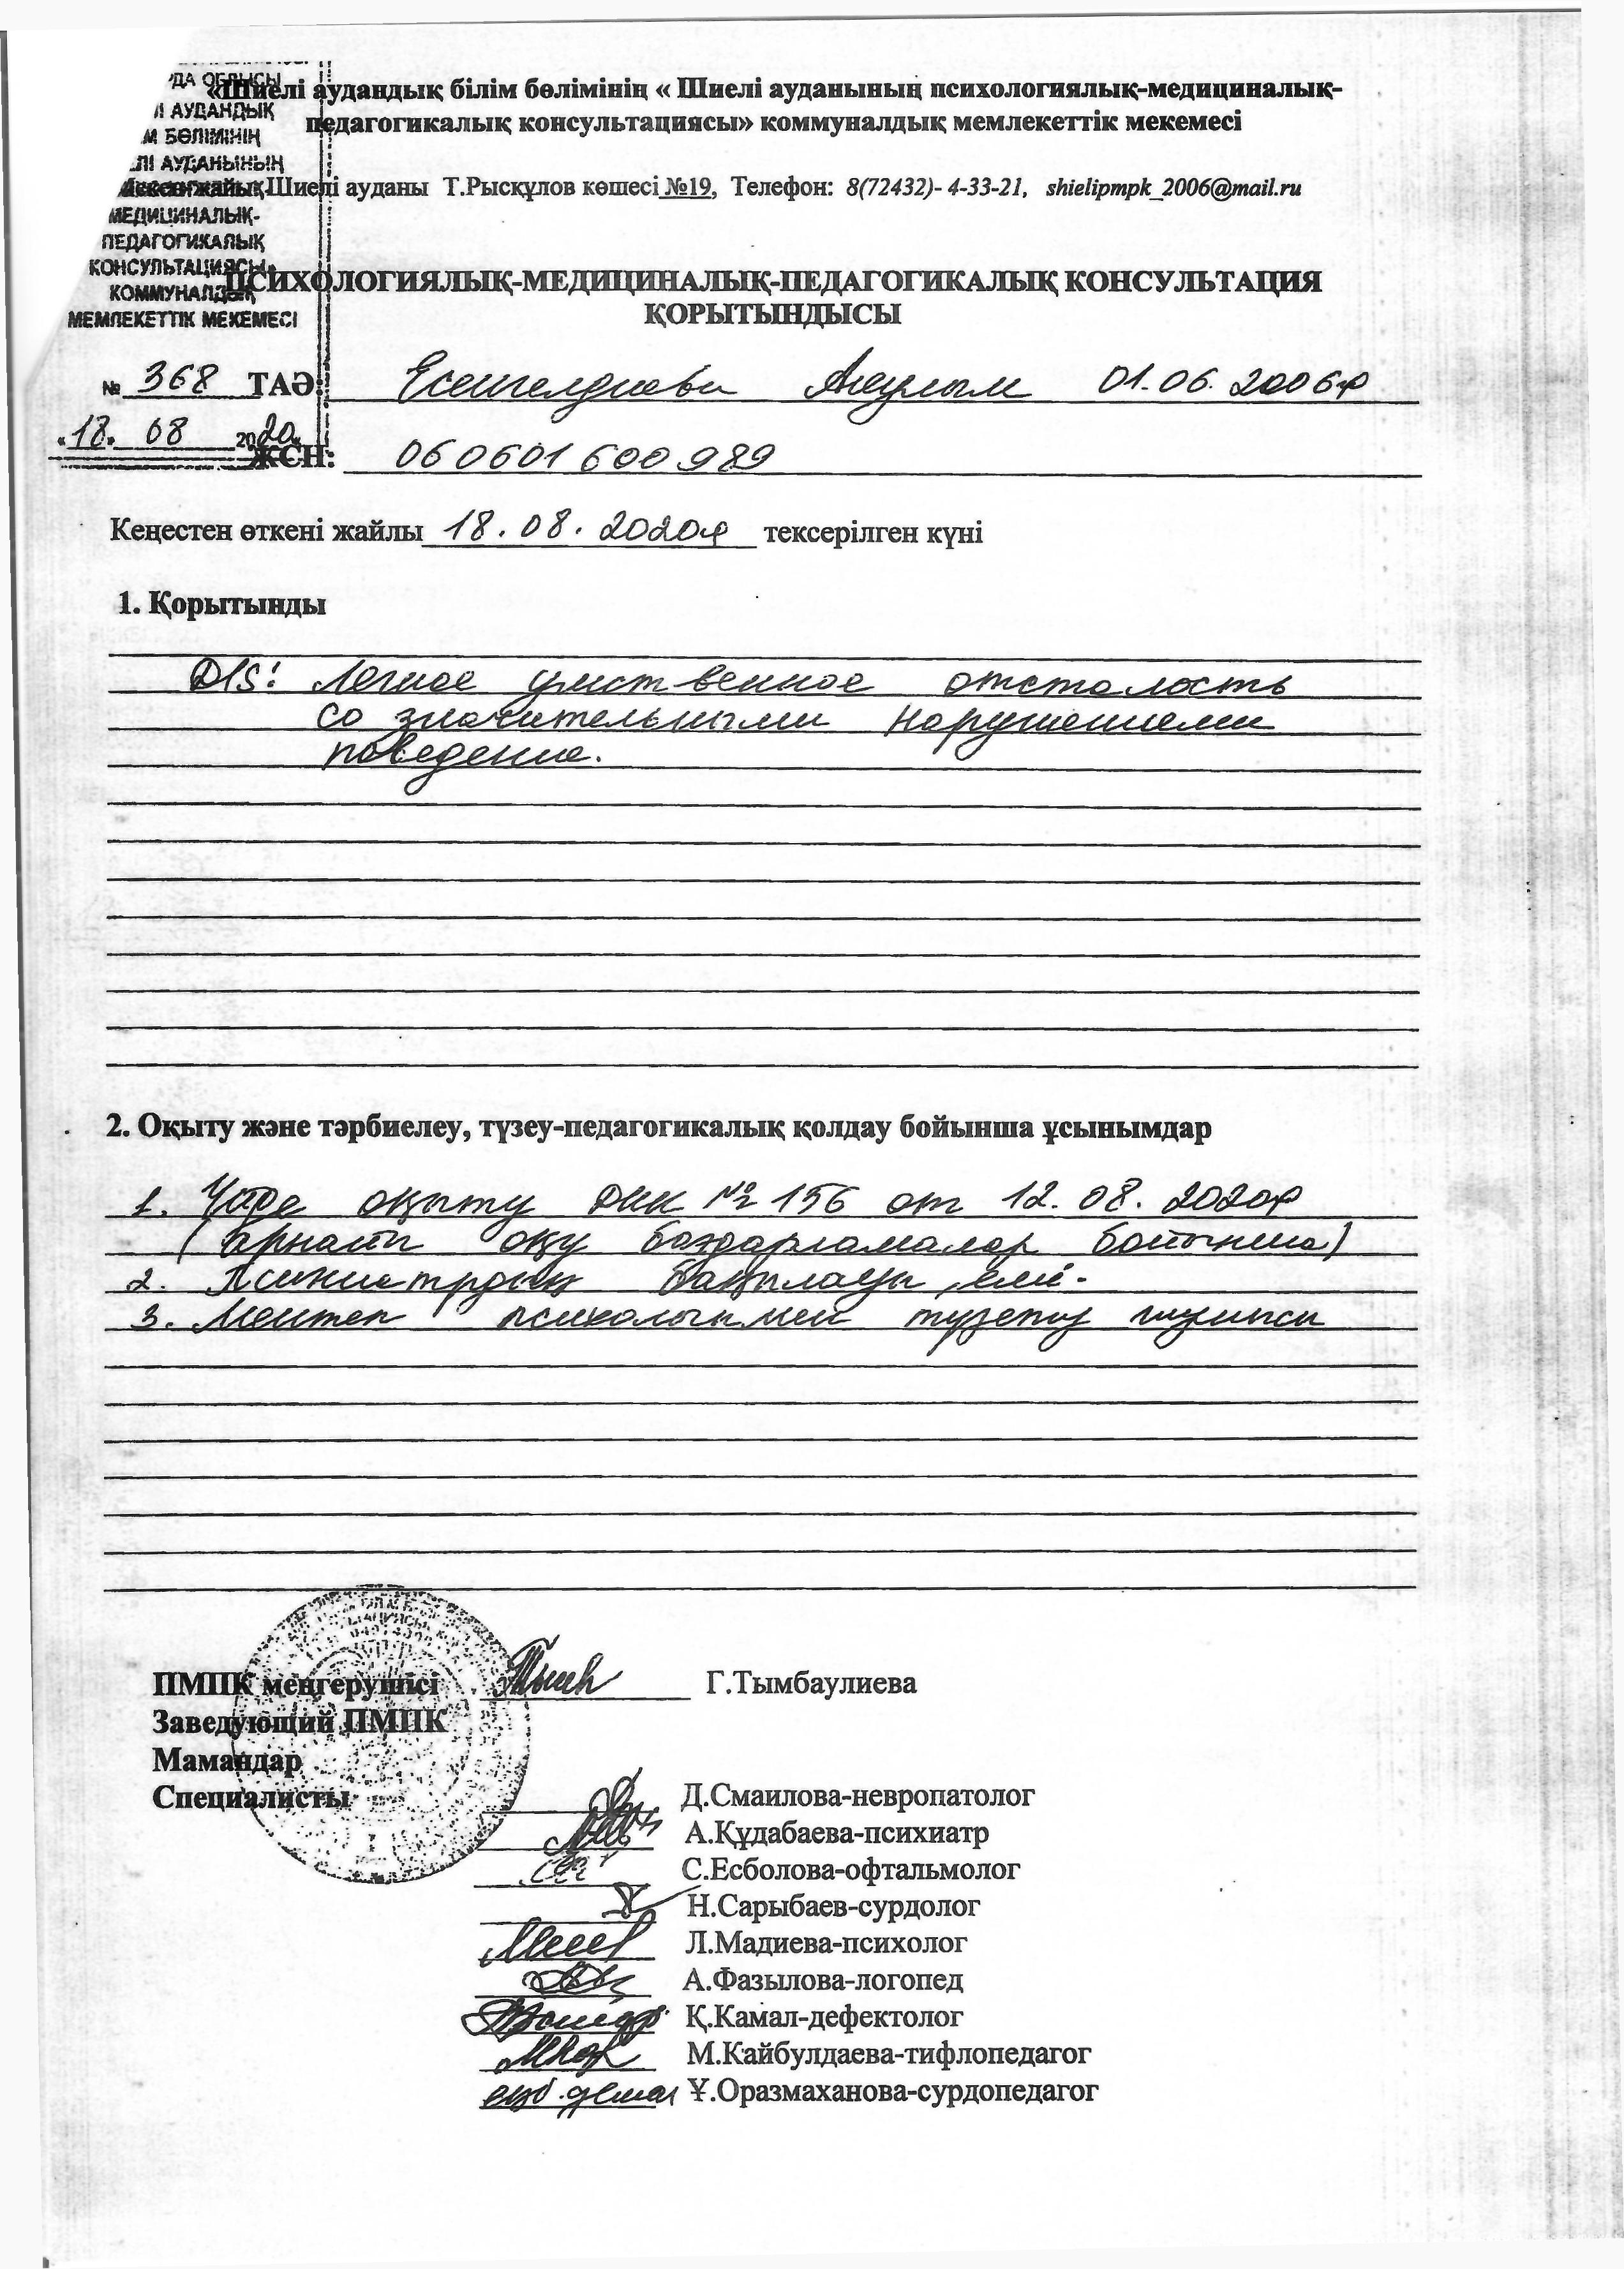 ДА ОБЛЫСЫ
І АУДАНДЫҚ
М БӨЛІМІНІҢ
ЛІ АУДАНЫНЫҢ
МЕДИЦИНАЛЫҚ-
ПЕДАГОГИКАЛЫҚ
КОНСУЛЬТАЦИЯСЫ»
КОММУНАЛДЫҚ
МЕМЛЕКЕТТІК МЕКЕМЕСІ
№ 368
«18» 08 2020
«Шиелі аудандық білім бөлімінің « Шиелі ауданының психологиялық-медициналық-
педагогикалық консультациясы» коммуналдық мемлекеттік мекемесі
Мекенжайы: Шиелі ауданы Т.Рысқұлов көшесі №19, Телефон: 8(72432)- 4-33-21, shielipmpk_2006@mail.ru
ПСИХОЛОГИЯЛЫҚ-МЕДИЦИНАЛЫҚ-ПЕДАГОГИКАЛЫҚ КОНСУЛЬТАЦИЯ
ҚОРЫТЫНДЫСЫ
ТАӘ: Есенгелдиева 01.06.2006
ЖСН: 060601600989
Кеңестен өткені жайлы 18.08.2020 тексерілген күні
1. Қорытынды
DIS: Легкое умственное отсталость
со значительными нарушениями
поведение.
2. Оқыту және тәрбиелеу, түзеу-педагогикалық қолдау бойынша ұсынымдар
1. Үйде оқыту ДКК №156 от 12.08.2020
(арнайы оқу бағдарламалар бойынша)
2. Психиатрдың бақылауы, емі.
3. Мектеп психологымен түзету жұмысы
ПМПК меңгерушісі Г.Тымбаулиева
Заведующий ПМПК
Мамандар
Специалисты
Д.Смаилова-невропатолог
А.Құдабаева-психиатр
С.Есболова-офтальмолог
Н.Сарыбаев-сурдолог
Л.Мадиева-психолог
А.Фазылова-логопед
Қ.Камал-дефектолог
М.Кайбулдаева-тифлопедагог
Ұ.Оразмаханова-сурдопедагог